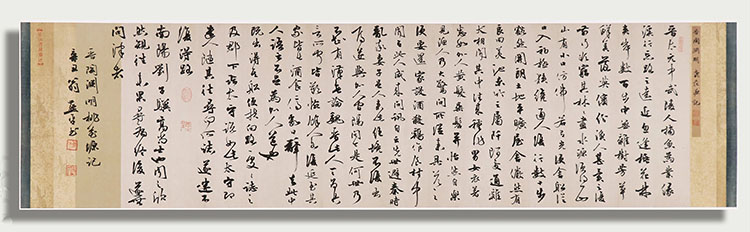 晉陶淵明 桃花源記
晉太元中武陵人捕魚為業緣
溪行忘路之遠近忽逢桃花林
夾岸數百步中無雜樹芳草
鮮美落英繽紛漁人甚異之復
前行欲窮其林林盡水源便得一
山山有小口仿佛若有光便舍船從
口入初極狹纔通人復行數十步
豁然開朗土地平曠屋舍儼然有
良田美池桑竹之屬阡陌交通雞
犬相聞其中往來種作男女衣著
悉如外人黃髮垂髫並怡然自樂
見漁人乃大驚問所從來具答之
便要還家設酒殺雞作食村中
聞有此人咸來問訊自云先世避秦時
亂率妻子邑人來此絕境不復
出焉遂與外人間隔問今是何世乃
不知有漢無論魏晉此人一一為具
言所聞皆歎惋餘人各復延至其
家皆出酒食停數日辭去此中
人語云不足為外人道也
既出得其船便扶向路處處誌之
及郡下詣太守說如此太守即
遣人隨其往尋向所誌遂迷不
復得路
南陽劉子驥高尚士也聞之欣
然規往未果尋病終後遂無
問津者
晉陶淵明桃花源記
辛丑 翁 書